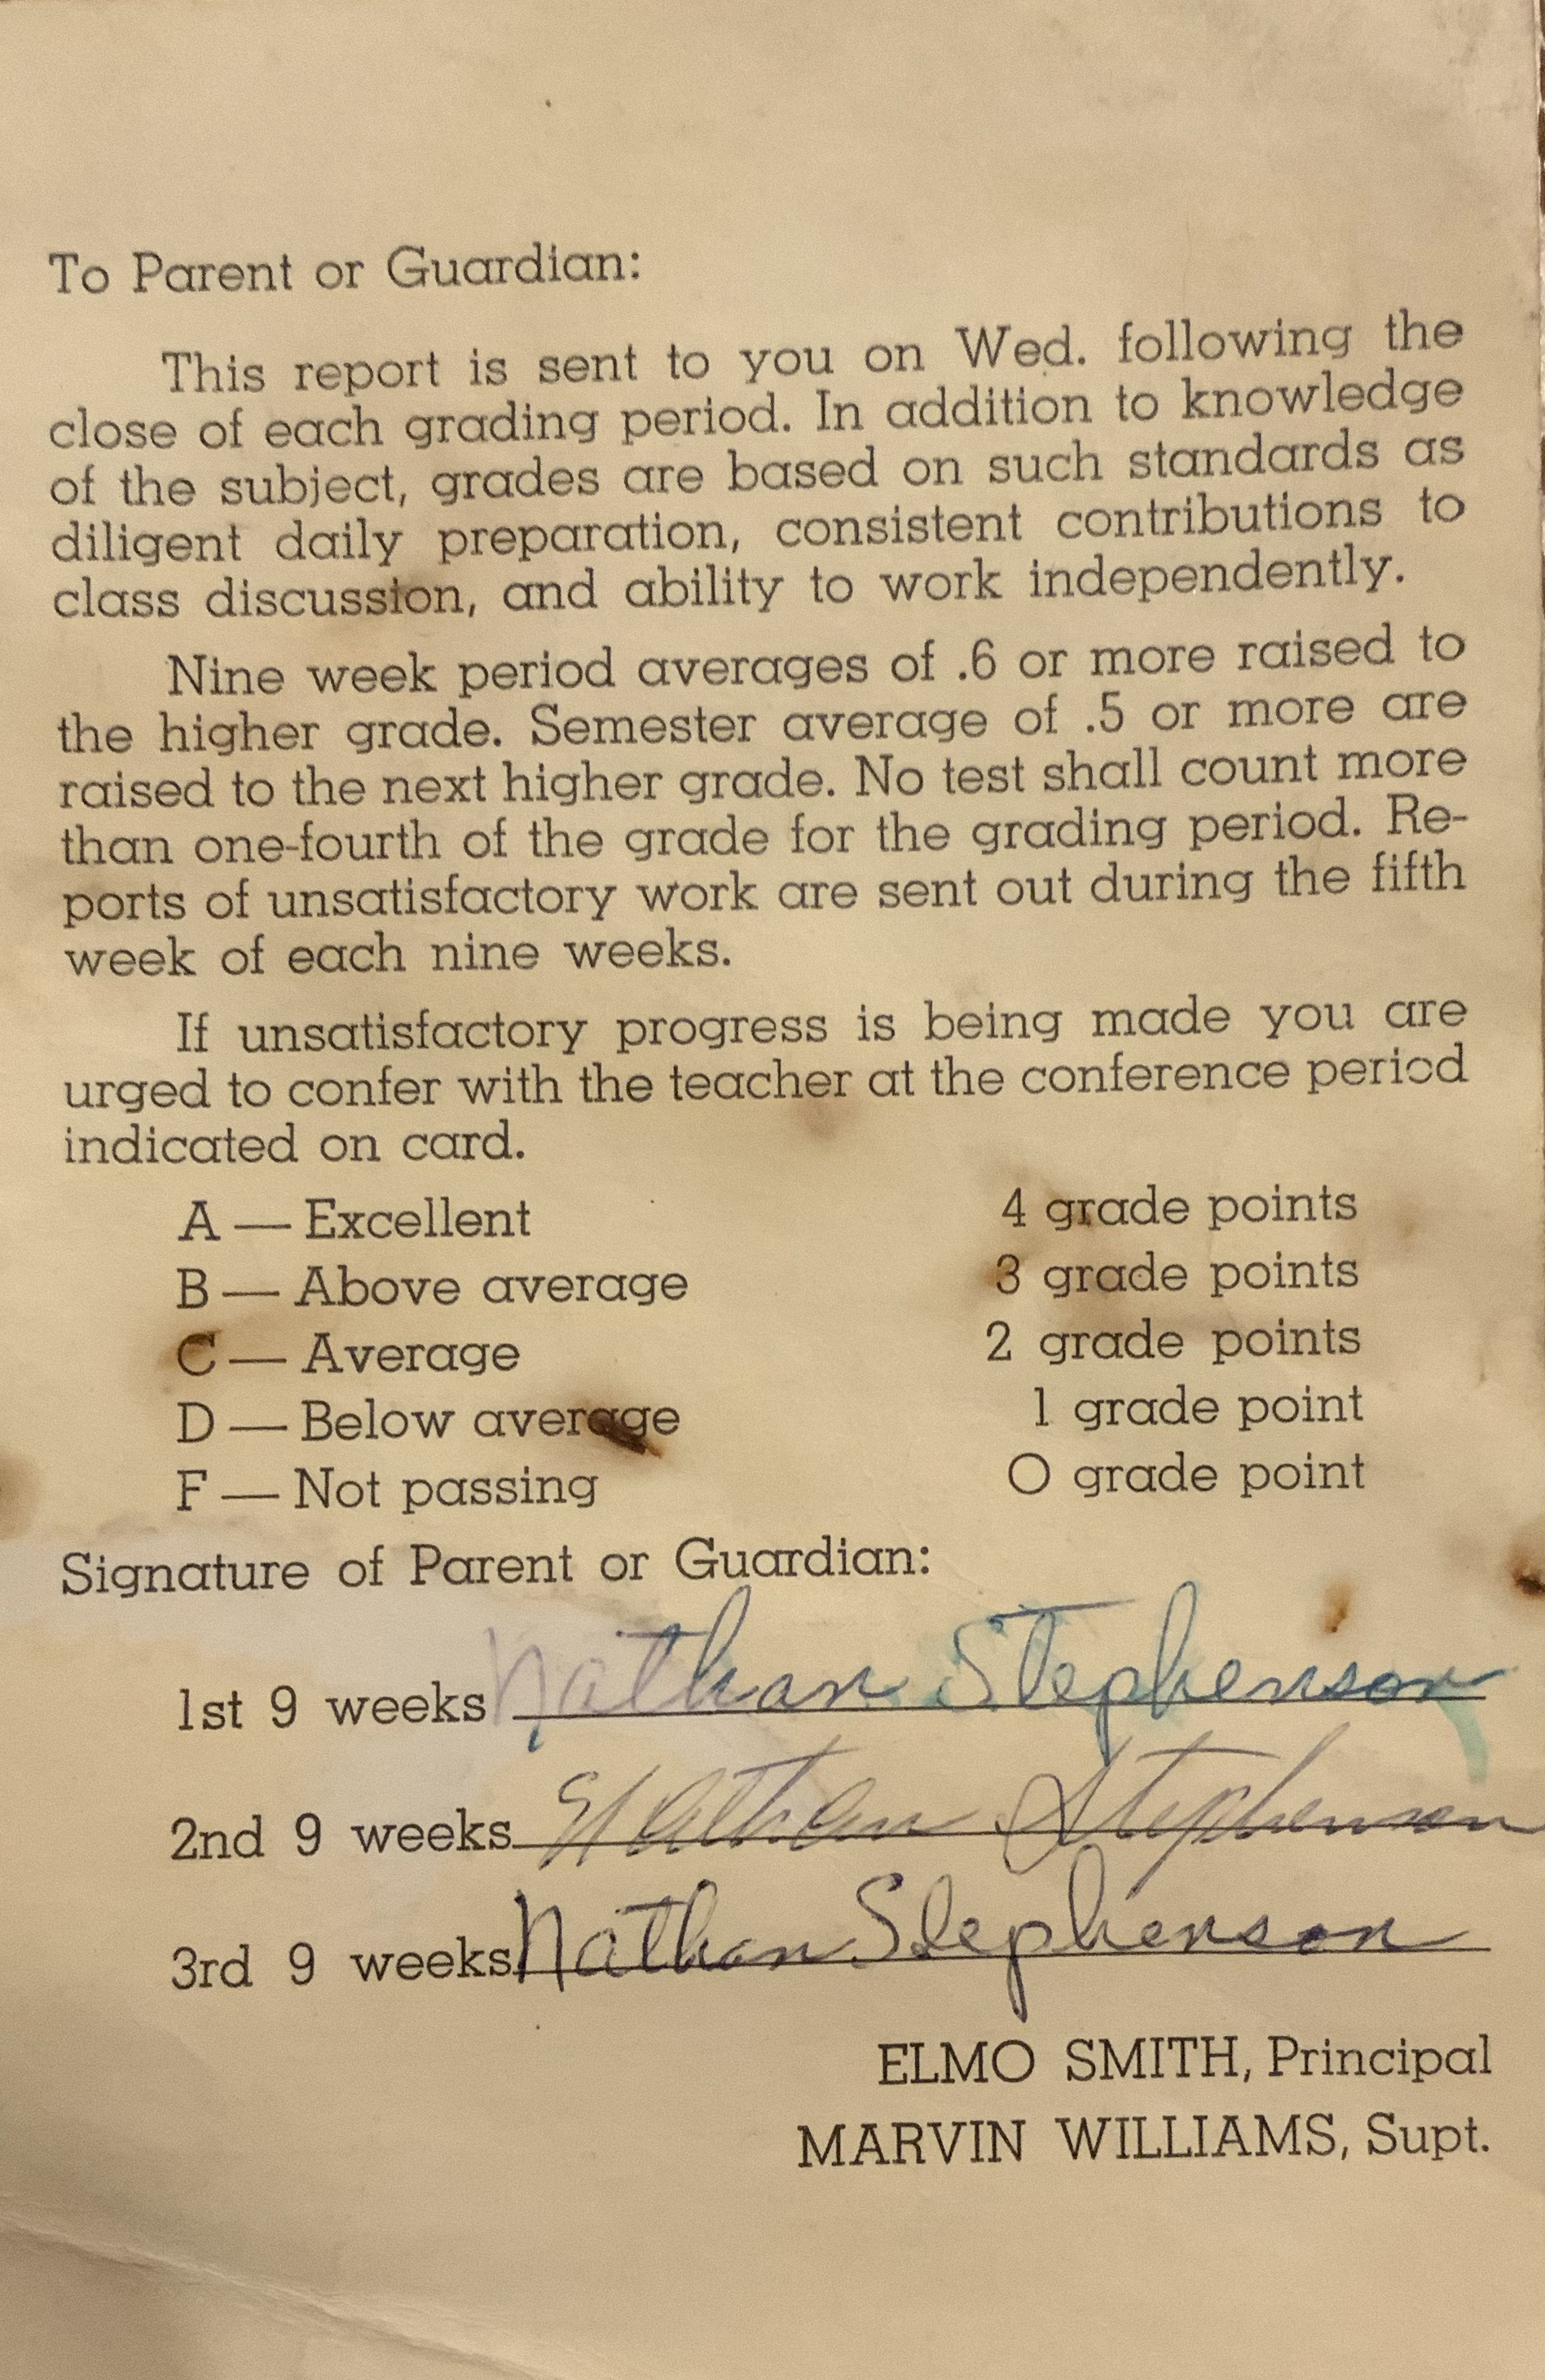 To Parent or Guardian:
This report is sent to you on Wed. following the
close of each grading period. In addition to knowledge
of the subject, grades are based on such standards as
diligent daily preparation, consistent contributions to
class discussion, and ability to work independently.
Nine week period averages of .6 or more raised to
the higher grade. Semester average of .5 or more are
raised to the next higher grade. No test shall count more
than one-fourth of the grade for the grading period. Re-
ports of unsatisfactory work are sent out during the fifth
week of each nine weeks.
If unsatisfactory progress is being made you are
urged to confer with the teacher at the conference period
indicated on card.
A — Excellent 4 grade points
B — Above average 3 grade points
C — Average 2 grade points
D — Below average 1 grade point
F — Not passing O grade point
Signature of Parent or Guardian:
1st 9 weeks Nathan Stephenson
2nd 9 weeks Nathan Stephenson
3rd 9 weeks Nathan Stephenson
ELMO SMITH, Principal
MARVIN WILLIAMS, Supt.